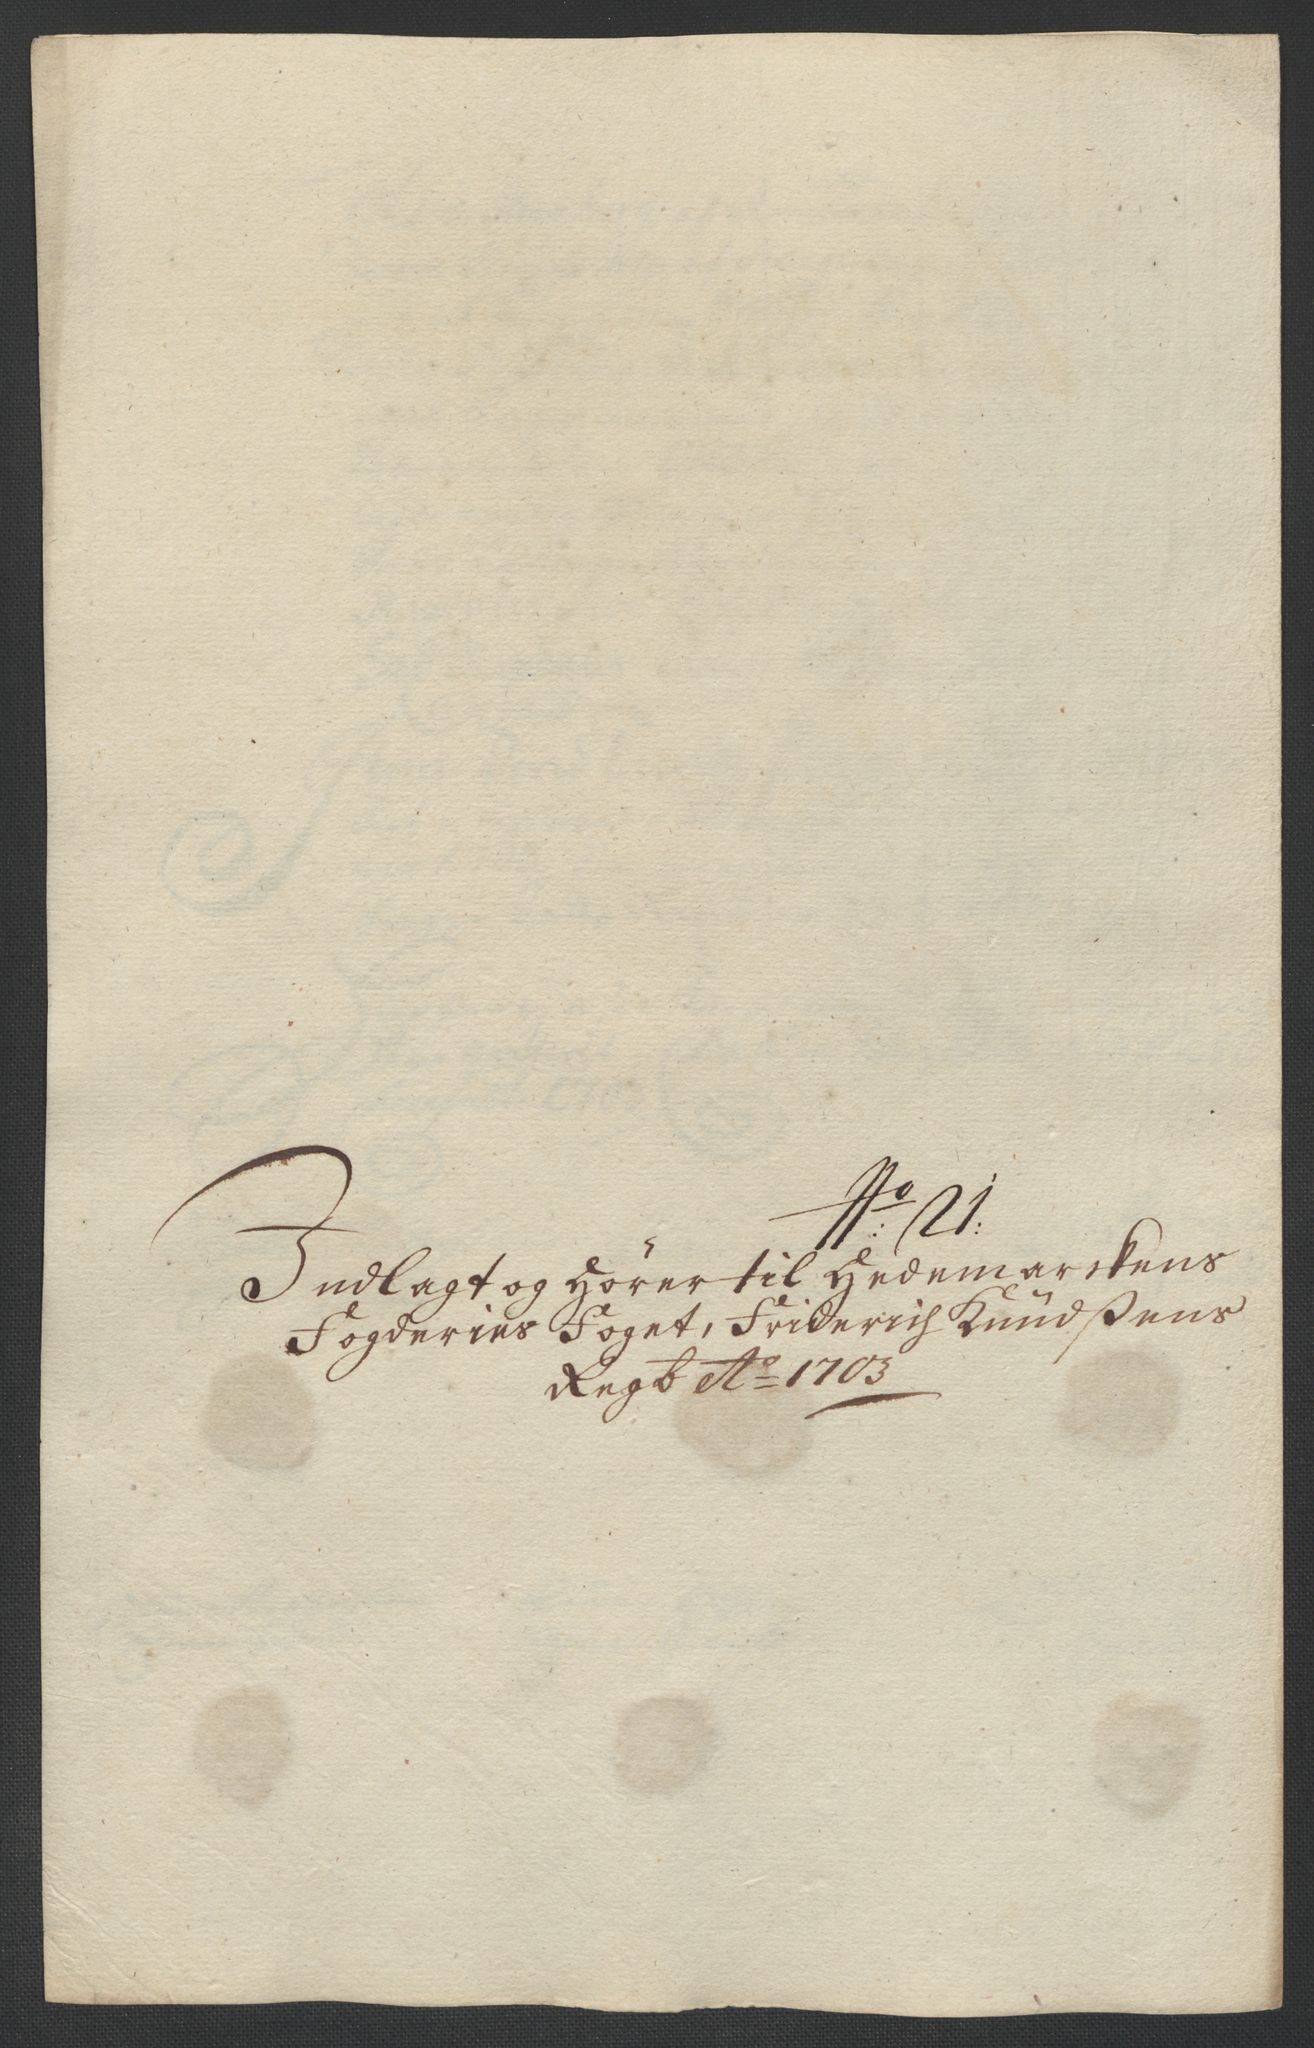 No: 21:
Indlagt og hörer til Hedemarckens
Fogderies Foget, Friderich Knüdßens
Regb Ao 1703